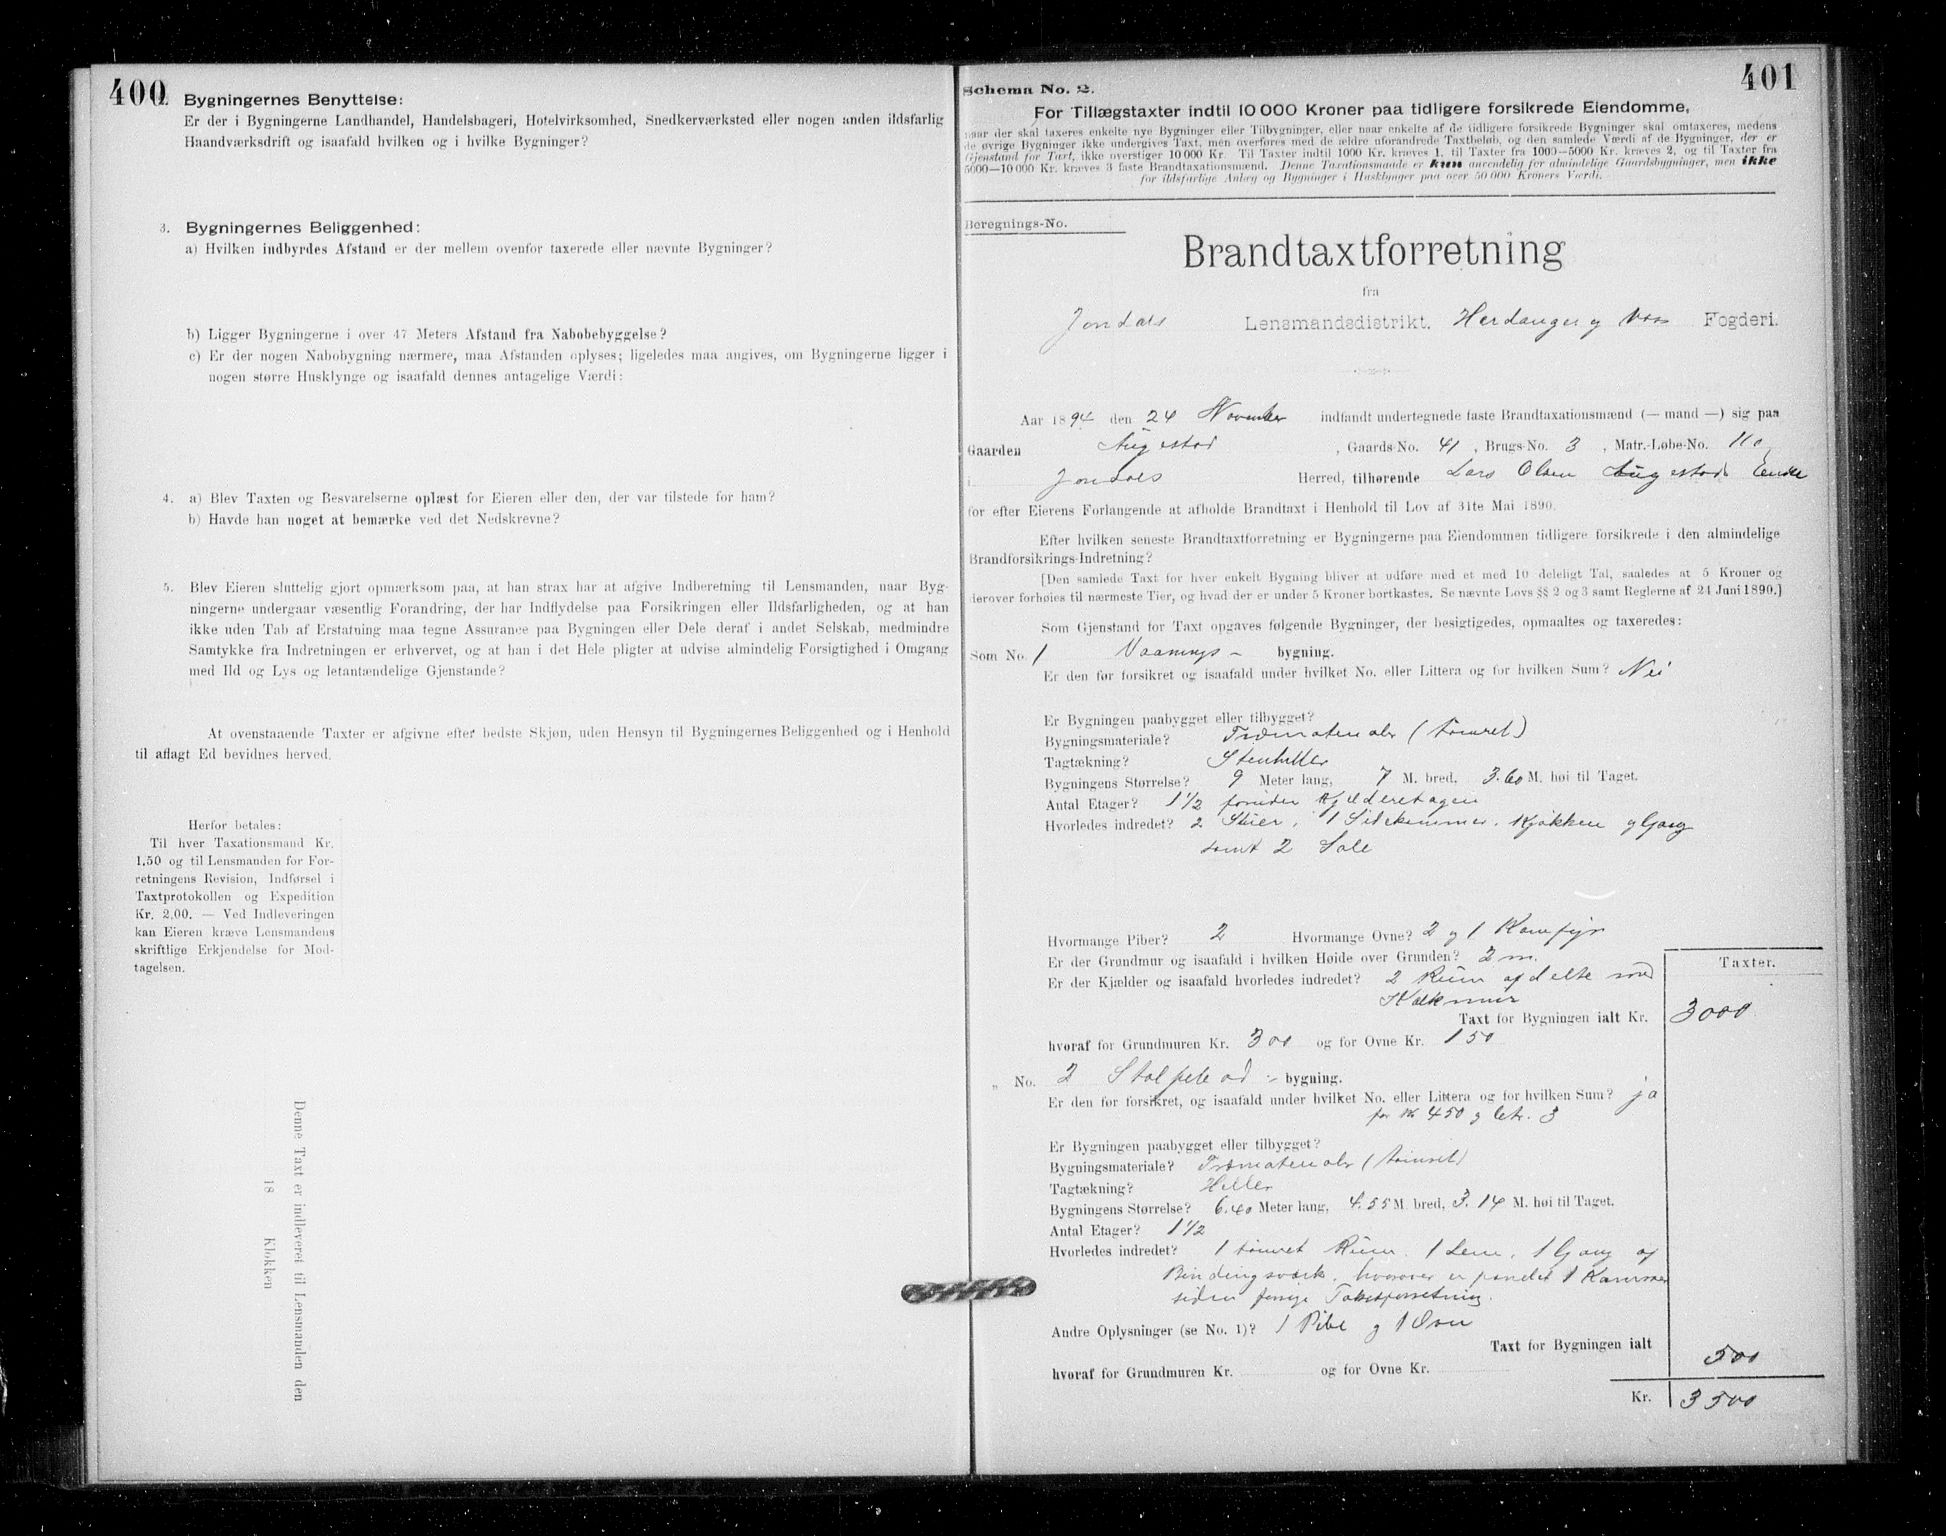 400
2. Bygningernes Benyttelse:
Er der i Bygningerne Landhandel, Handelsbageri, Hotelvirksomhed, Snedkerværksted eller nogen anden ildsfarlig
Haandværksdrift og isaafald hvilken og i hvilke Bygninger?
3. Bygningernes Beliggenhed:
a) Hvilken indbyrdes Afstand er der mellem ovenfor taxerede eller nævnte Bygninger?
b) Ligger Bygningerne i over 47 Meters Afstand fra Nabobebyggelse?
c) Er der nogen Nabobygning nærmere, maa Afstanden oplyses; ligeledes maa angives, om Bygningerne ligger i
nogen større Husklynge og isaafald dennes antagelige Værdi:
4. a) Blev Taxten og Besvarelserne oplæst for Eieren eller den, der var tilstede for ham?
b) Havde han noget at bemærke ved det Nedskrevne?
5. Blev Eieren sluttelig gjort opmærksom paa, at han strax har at afgive Indberetning til Lensmanden, naar Byg-
ningerne undergaar væsentlig Forandring, der har Indflydelse paa Forsikringen eller Ildsfarligheden, og at han
ikke uden Tab af Erstatning maa tegne Assurance paa Bygningen eller Dele deraf i andet Selskab, medmindre
Samtykke fra Indretningen er erhvervet, og at han i det Hele pligter at udvise almindelig Forsigtighed i Omgang
med Ild og Lys og letantændelige Gjenstande?
At ovenstaaende Taxter er afgivne efter bedste Skjøn, uden Hensyn til Bygningernes Beliggenhed og i Henhold
til aflagt Ed bevidnes herved.
Herfor betales:
Til hver Taxationsmand Kr.
1,50 og til Lensmanden for For-
retningens Revision, Indførsel i
Taxtprotokollen og Expedition
Kr. 2,00. — Ved Indleveringen
kan Eieren kræve Lensmandens
skriftlige Erkjendelse for Mod-
tagelsen.
Denne Taxt er indleveret til Lensmanden den
18 Klokken
401
Schema No. 2.
For Tillægstaxter indtil 10 000 Kroner paa tidligere forsikrede Eiendomme,
naar der skal taxeres enkelte nye Bygninger eller Tilbygninger, eller naar enkelte af de tidligere forsikrede Bygninger skal omtaxeres, medens
de øvrige Bygninger ikke undergives Taxt, men overføres med de ældre uforandrede Taxtbeløb, og den samlede Værdi af de Bygninger, der er
Gjenstand for Taxt, ikke overstiger 10 000 Kr. Til Taxter indtil 1000 Kr. kræves 1, til Taxter fra 1000—5000 Kr. kræves 2, og til Taxter fra
5000—10 000 Kr. kræves 3 faste Brandtaxationsmænd. Denne Taxationsmaade er kun anvendelig for almindelige Gaardsbygninger, men ikke
for ildsfarlige Anlæg og Bygninger i Husklynger paa over 50 000 Kroners Værdi.
Beregnings-No.
Brandtaxtforretning
fra
Jondals Lensmandsdistrikt, Hardanger og Voss Fogderi.
Aar 1894 den 24 November indfandt undertegnede faste Brandtaxationsmænd (— mand —) sig paa
Gaarden Augestad, Gaards-No. 41, Brugs-No. 3, Matr.-Løbe-No. 110
i Jondals Herred, tilhørende Lars Olsen Augestads Enke
for efter Eierens Forlangende at afholde Brandtaxt i Henhold til Lov af 31te Mai 1890.
Efter hvilken seneste Brandtaxtforretning er Bygningerne paa Eiendommen tidligere forsikrede i den almindelige
Brandforsikrings-Indretning?
[Den samlede Taxt for hver enkelt Bygning bliver at udføre med et med 10 deleligt Tal, saaledes at 5 Kroner og
derover forhøies til nærmeste Tier, og hvad der er under 5 Kroner bortkastes. Se nævnte Lovs §§ 2 og 3 samt Reglerne af 24 Juni 1890.]
Som Gjenstand for Taxt opgaves følgende Bygninger, der besigtigedes, opmaaltes og taxeredes:
Som No. 1 Vaanings- bygning.
Er den før forsikret og isaafald under hvilket No. eller Littera og for hvilken Sum? Nei
Er Bygningen paabygget eller tilbygget?
Bygningsmateriale? Træmaterialer (tømret)
Tagtækning? Stenheller
Bygningens Størrelse? 9 Meter lang, 7 M. bred, 3.60 M. høi til Taget.
Antal Etager? 1½ foruden Kjælderetagen
Hvorledes indredet? 2 Stuer, 1 Sidekammer, Kjøkken og Gang
samt 2 Sale
Hvormange Piber? 2 Hvormange Ovne? 2 og 1 Komfyr
Er der Grundmur og isaafald i hvilken Høide over Grunden? 2 m.
Er der Kjælder og isaafald hvorledes indredet? 2 Rum afdelte med
Kalkmur
Taxter.
Taxt for Bygningen ialt Kr. 3000
hvoraf for Grundmuren Kr. 300 og for Ovne Kr. 150
„ No. 2 Stolpebod :- bygning.
Er den før forsikret, og isaafald under hvilket No. eller Littera og for hvilken Sum? ja
for Kr 450 og Litr. 3
Er Bygningen paabygget eller tilbygget?
Bygningsmateriale? Træmaterialer (tømret)
Tagtækning? Heller
Bygningens Størrelse? 6.40 Meter lang, 4.55 M. bred, 3.14 M. høi til Taget.
Antal Etager? 1½
Hvorledes indredet? 1 tømret Rum, 1 Lem, 1 Gang af
Bindingsværk, hvorover er panelet 1 Kammer
siden forrige Taxtforretning.
Andre Oplysninger (se No. 1)? 1 Pibe og 1 Ovn
Taxt for Bygningen ialt 500
hvoraf for Grundmuren Kr. og for Ovne Kr.
Kr. 3500